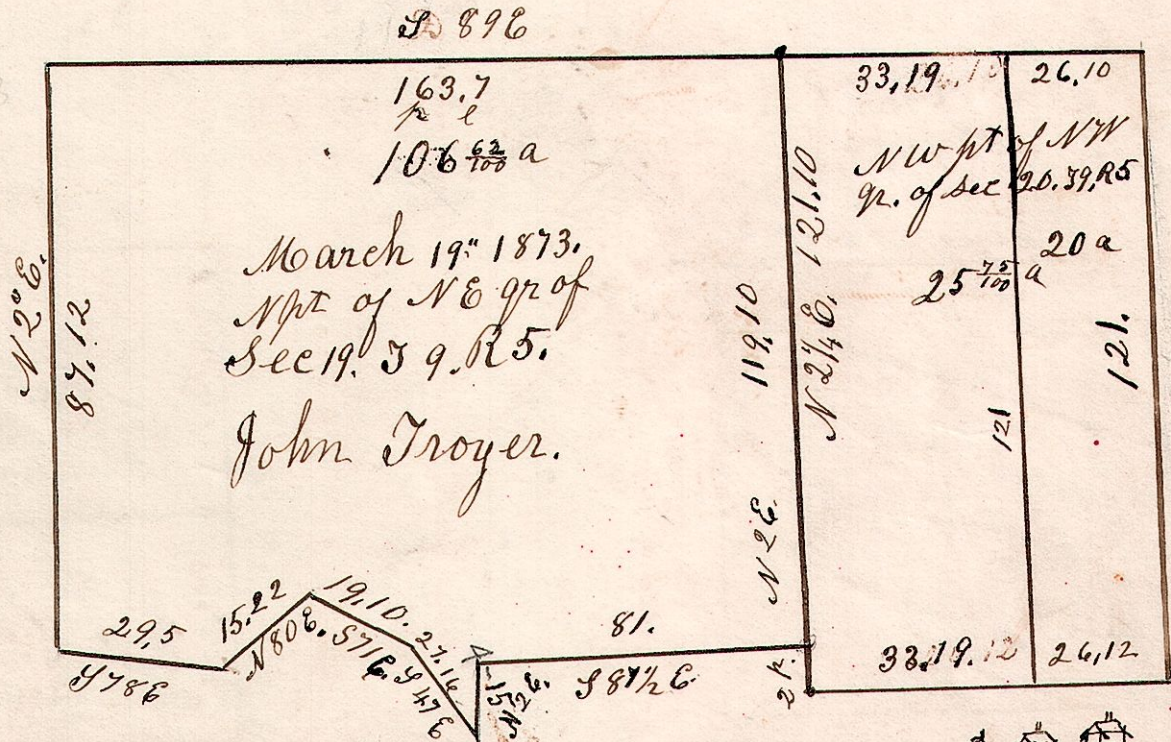 S 89E
163,7
p l
106 62/100 a
March 19" 1873.
Npt of NE qr of
Sec 19. T 9. R 5.
John Troyer.
N 2° E.
87,12
29,5
S 78E
15,22
N 80E.
19,10.
S 71E.
27,16
S 47E
15
N 2E.
81.
S 87 1/2 E
2 p.
N 2E
119,10
N 2 1/4 E. 121.10
33,19
26,10
NW pt of NW
qr. of Sec 20. T9, R5
20 a
25 75/100 a
121.
121
33.19.12
26,12